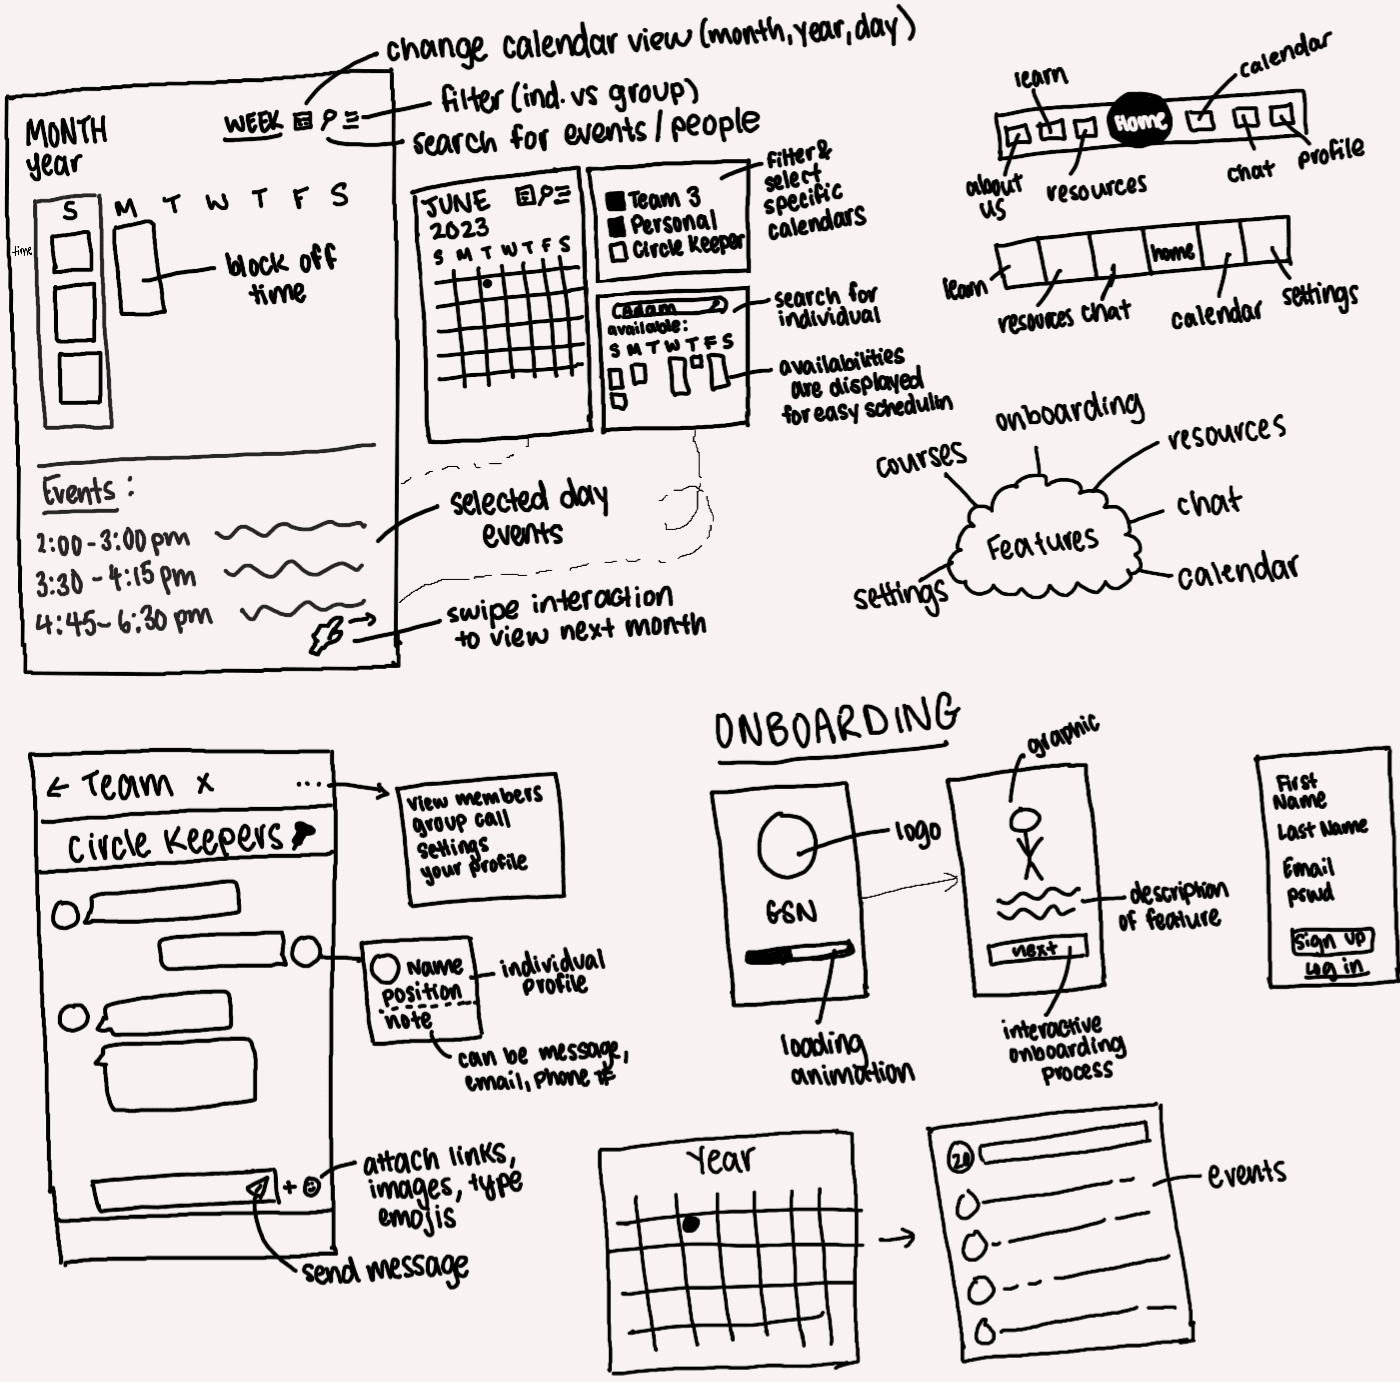 change calendar view (month, year, day)
filter (ind. vs group)
search for events / people
MONTH
year
WEEK
S M T W T F S
time
block off
time
Events :
2:00 - 3:00 pm
3:30 - 4:15 pm
4:45 - 6:30 pm
selected day
events
swipe interaction
to view next month
JUNE
2023
S M T W T F S
Team 3
Personal
Circle Keeper
filter &
select
specific
calendars
Adam
available:
S M T W T F S
search for
individual
availabilities
are displayed
for easy schedulin
learn
calendar
Home
about
us
resources
chat
profile
home
learn
resources
chat
calendar
settings
Features
onboarding
courses
resources
chat
calendar
settings
← Team x ...
Circle Keepers
view members
group call
settings
your profile
Name
position
note
individual
profile
can be message,
email, phone #
attach links,
images, type
emojis
+
send message
ONBOARDING
GSN
logo
loading
animation
graphic
description
of feature
next
interactive
onboarding
process
First
Name
Last Name
Email
pswd
sign up
log in
Year
20
events